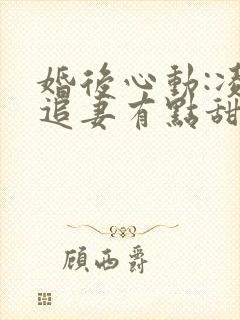 婚後心動:凌
追妻有點甜
顧西爵